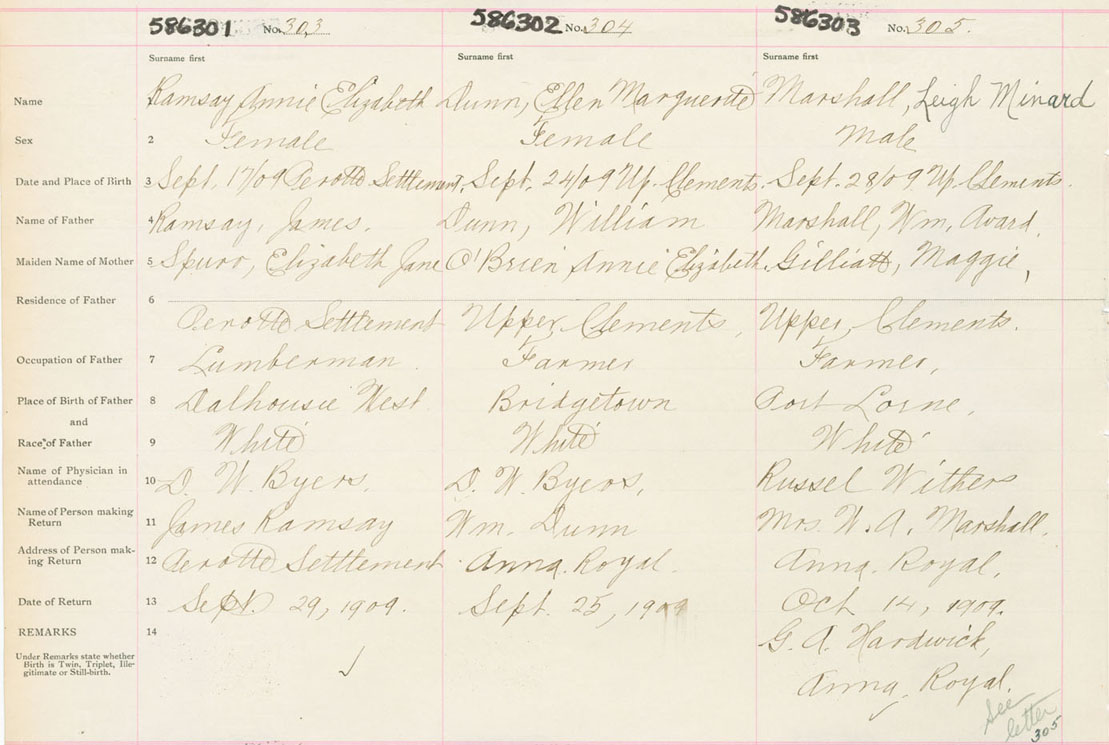 586301 No. 303 586302 No. 304 586303 No. 305.
Surname first Surname first Surname first
Name Ramsay Annie Elizabeth Dunn, Ellen Marguerite Marshall, Leigh Minard
Sex 2 Female Female Male
Date and Place of Birth 3 Sept. 17/09 Perotte Settlement, Sept. 24/09 Up. Clements. Sept. 28/09 Up. Clements.
Name of Father 4 Ramsay, James. Dunn, William Marshall, Wm. Avard.
Maiden Name of Mother 5 Spurr, Elizabeth Jane O'Brien Annie Elizabeth. Gilliatt, Maggie,
Residence of Father 6
Perotte Settlement Upper Clements, Upper Clements.
Occupation of Father 7 Lumberman. Farmer Farmer,
Place of Birth of Father 8 Dalhousie West. Bridgetown Port Lorne,
and
Race of Father 9 White White White
Name of Physician in
attendance 10 D. W. Byers, D. W. Byers, Russel Withers
Name of Person making
Return 11 James Ramsay Wm. Dunn Mrs. W. A. Marshall.
Address of Person mak-
ing Return 12 Perotte Settlement. Anna. Royal. Anna. Royal.
Date of Return 13 Sept. 29, 1909. Sept. 25, 1909 Oct 14, 1909.
REMARKS 14 G. A. Hardwick,
Under Remarks state whether
Birth is Twin, Triplet, Ille-
gitimate or Still-birth.
Anna. Royal.
See
letter
305